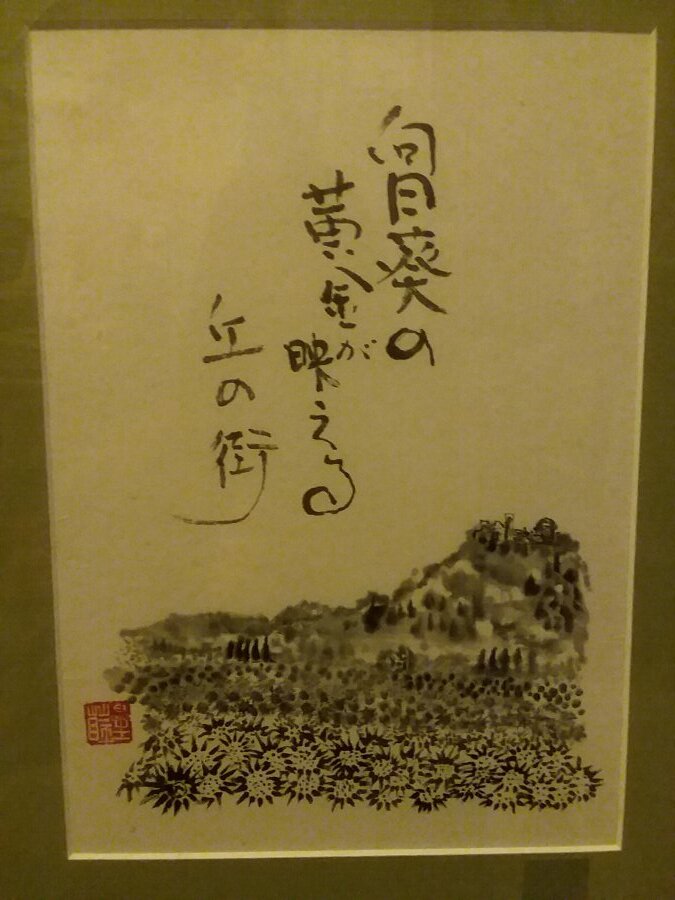 向日葵の
黄金が
映える
丘の街